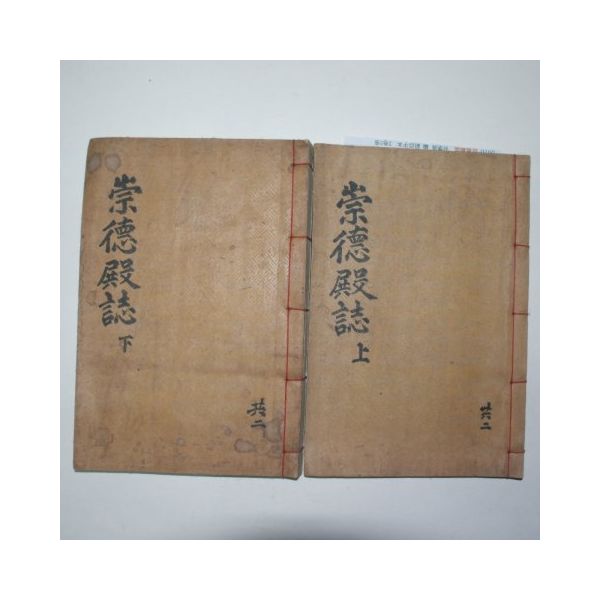 崇德殿誌
上
共二
崇德殿誌
下
共二